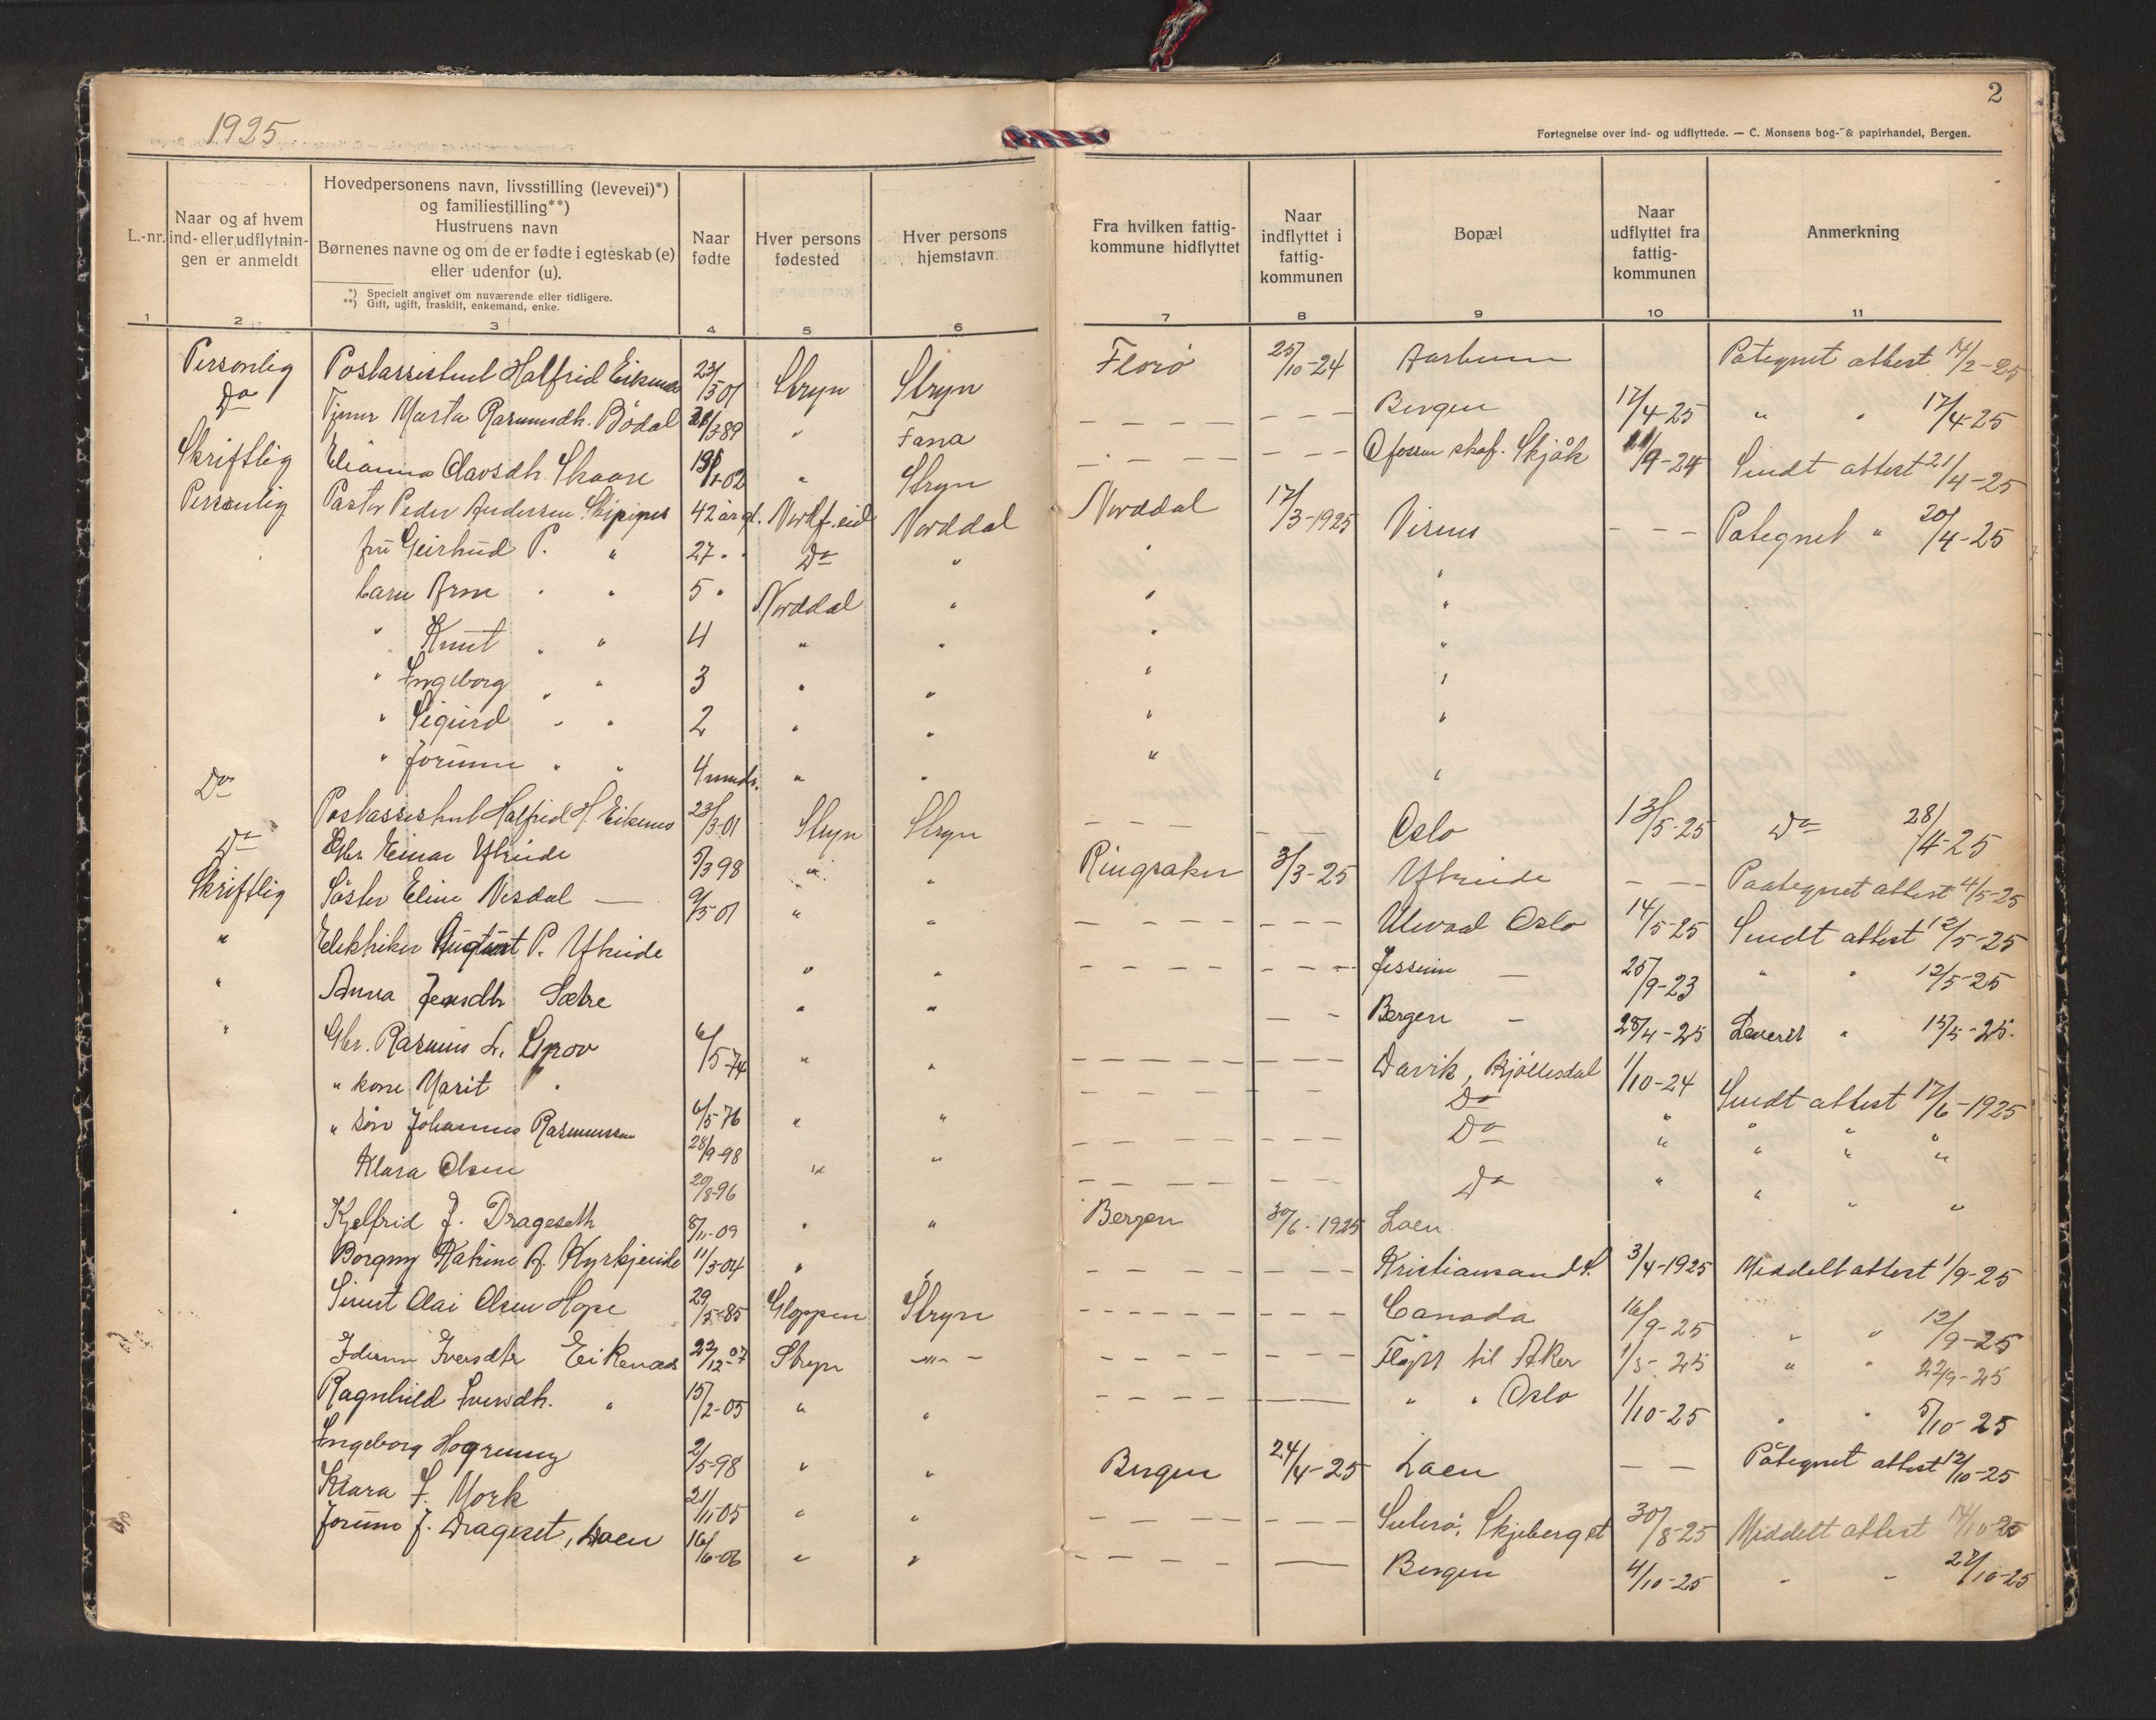 1925
2
Fortegnelse over ind- og udflyttede. — C. Monsens bog- & papirhandel, Bergen.
L.-nr.
Naar og af hvem ind- eller udflytnin- gen er anmeldt
Hovedpersonens navn, livsstilling (levevei)*)
og familiestilling**)
Hustruens navn
Børnenes navne og om de er fødte i egteskab (e)
eller udenfor (u).
*) Specielt angivet om nuværende eller tidligere.
**) Gift, ugift, fraskilt, enkemand, enke.
Naar fødte
Hver persons fødested
Hver persons hjemstavn
Fra hvilken fattig- kommune hidflyttet
Naar indflyttet i fattig- kommunen
Bopæl
Naar udflyttet fra fattig- kommunen
Anmerkning
1 2 3 4 5 6 7 8 9 10 11
Personlig Postassistent Halfrid Eikenæs 23/3 01 Stryn Stryn Florø 25/10-24 Aarheim Påtegnet attest 14/2-25
Do Tjener Marta Rasmusdtr. Bödal /3 89 " Fana – – – – – – – Bergen 17/4-25 " " 17/4-25
Skriftlig Olavsdtr. Skaare -02 " Stryn – – – – – – – Skjåk /9-24 Sendt attest 21/4-25
Personlig Pastor Peder Andersen 42 år gl. Nordf.eid Norddal Norddal 17/3-1925 Visnes – – – Påtegnet " 20/4-25
fru Geirhud P. " 27 " " Do " " "
barn Arne " " 5 " Norddal " " "
" Knut " " 4 " " " "
" Ingeborg " " 3 " " " "
" Sigurd " " 2 " " " "
" Jorunn " " 4 mndr. " " " "
Do Postassistent Halfrid H. Eikenes 23/3-01 Stryn Stryn – – – – – Oslo 13/5-25 Do 28/4-25
Do Gbr. Einar Ytreeide 5/3 98 " " Ringsaker 3/3-25 Ytreeide – – – Paategnet attest 4/5-25
Skriftlig Söster Eline Nesdal — 9/5-01 " " – – – – – – – Ulevaal Oslo 14/5-25 Sendt attest 12/5-25
" Elektriker August P. Ytreeide " " – – – – – – – Jessum — 25/9-23 " " 12/5-25
" Anna Jensdtr Sætre " " – – Bergen – 28/4-25 Leveret " 15/5-25.
" Gbr. Rasmus L. Grov 6/5-74 " " – – – – – – – Davik, Bjöllesdal 1/10-24 Sendt attest 17/6-1925
" kone Marit " 6/5-76 " " – – – – – – Do " " " "
" sön Johannes Rasmussen 28/9-98 " " – – – – – – – Do " " " "
Klara Olsen 20/8-96 – – – – – – – Do " " " "
" Kjelfrid J. Drageseth 8/11-09 " " Bergen 30/6-1925 Loen
Borgny Katrine A. Kyrkjeeide 11/3-04 " " – – – – – – – Kristiansand S. 3/4-1925 Meddelt attest 1/9-25
Sivert Olai Olsen Hope 29/5-85 Gloppen Stryn – – – – – – – Canada 16/9-25 " " 12/9-25
Idunn Iversdtr Eikenæs 22/12-07 Stryn –"– – – – – – – – Fløjtt til Aker 1/5-25 " " 22/9-25
Ragnhild Iversdtr. " 15/2-05 " " – – – – – – – " " Oslo 1/10-25 " " 5/10-25
Ingeborg Hogrenning 2/5-98 " " Bergen 24/4-25 Loen – – Påtegnet attest 12/10-25
Klara J. Mork 21/11 05 " " – – – – – – – Skjeberg st 30/8-25 Meddelt attest 14/10-25
Jorunn J. Drageset, Loen 16/6-06 " " – – – – — Bergen 4/10-25 " " 28/10-25